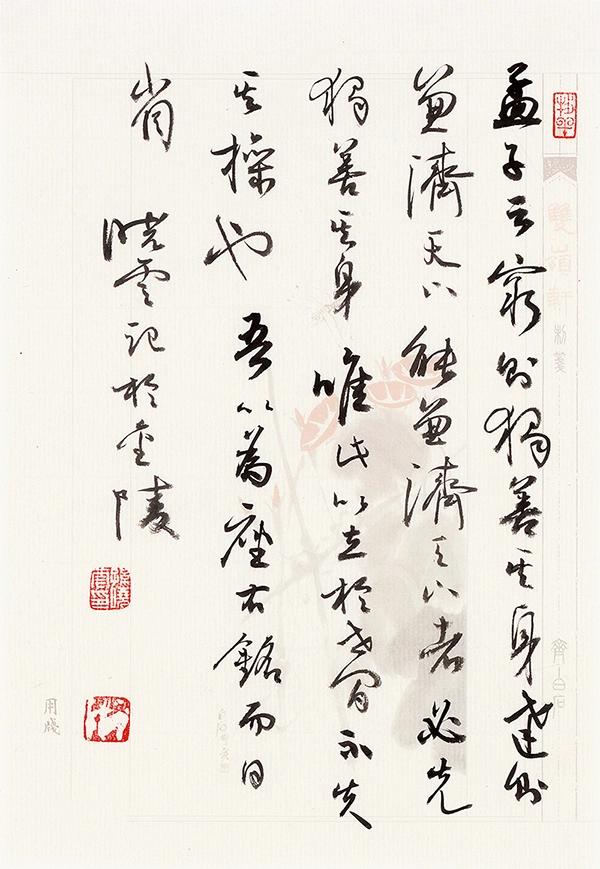 雙嶺軒
制箋
齊白石
孟子云窮則獨善其身達則
兼濟天下能兼濟天下者必先
獨善其身唯此以立於世間不失
其操也吾以為座右銘而日
省
曉雲記於金陵
用牋